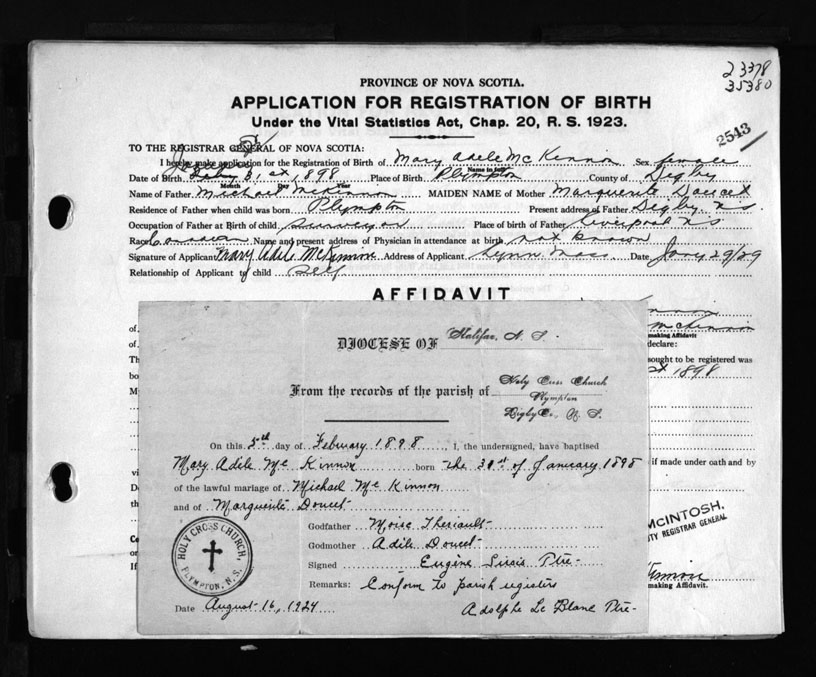 23378
35380
PROVINCE OF NOVA SCOTIA.
APPLICATION FOR REGISTRATION OF BIRTH
Under the Vital Statistics Act, Chap. 20, R. S. 1923.
2543
TO THE REGISTRAR GENERAL OF NOVA SCOTIA:
I hereby make application for the Registration of Birth of Mary Adele McKinnon Sex female
Name in full
Date of Birth 31st 1898 Place of Birth Plympton County of Digby
Month Day Year
Name of Father Michael McKinnon MAIDEN NAME of Mother Marguerite Doucet
Residence of Father when child was born Plympton Present address of Father Digby N S
Occupation of Father at Birth of child surveyor Place of birth of Father Liverpool N S
Race Canadian Name and present address of Physician in attendance at birth not known
Signature of Applicant Mary Adele McKinnon Address of Applicant Lynn Mass Date Jany 29/29
Relationship of Applicant to child self
AFFIDAVIT
of
of McKinnon
making Affidavit
Th declare:
sought to be registered was
bo st 1898
M
DIOCESE OF Halifax, N. S.
From the records of the parish of Holy Cross Church
Plympton
Digby Co., N. S.
On this 5th day of February 1898, I, the undersigned, have baptised
Mary Adèle Mc Kinnon born the 31st of January 1898
of the lawful marriage of Michael Mc Kinnon
and of Marguerite Doucet
Godfather Moise Theriault
Godmother Adèle Doucet
Signed Eugène Ptre
Remarks: Conform to parish registers
Date August 16, 1924 Adolphe Le Blanc Ptre
HOLY CROSS CHURCH,
PLYMPTON, N.S.
vi if made under oath and by
De
the
MCINTOSH,
TY REGISTRAR GENERAL
Ce
on
If Kinnon
making Affidavit.